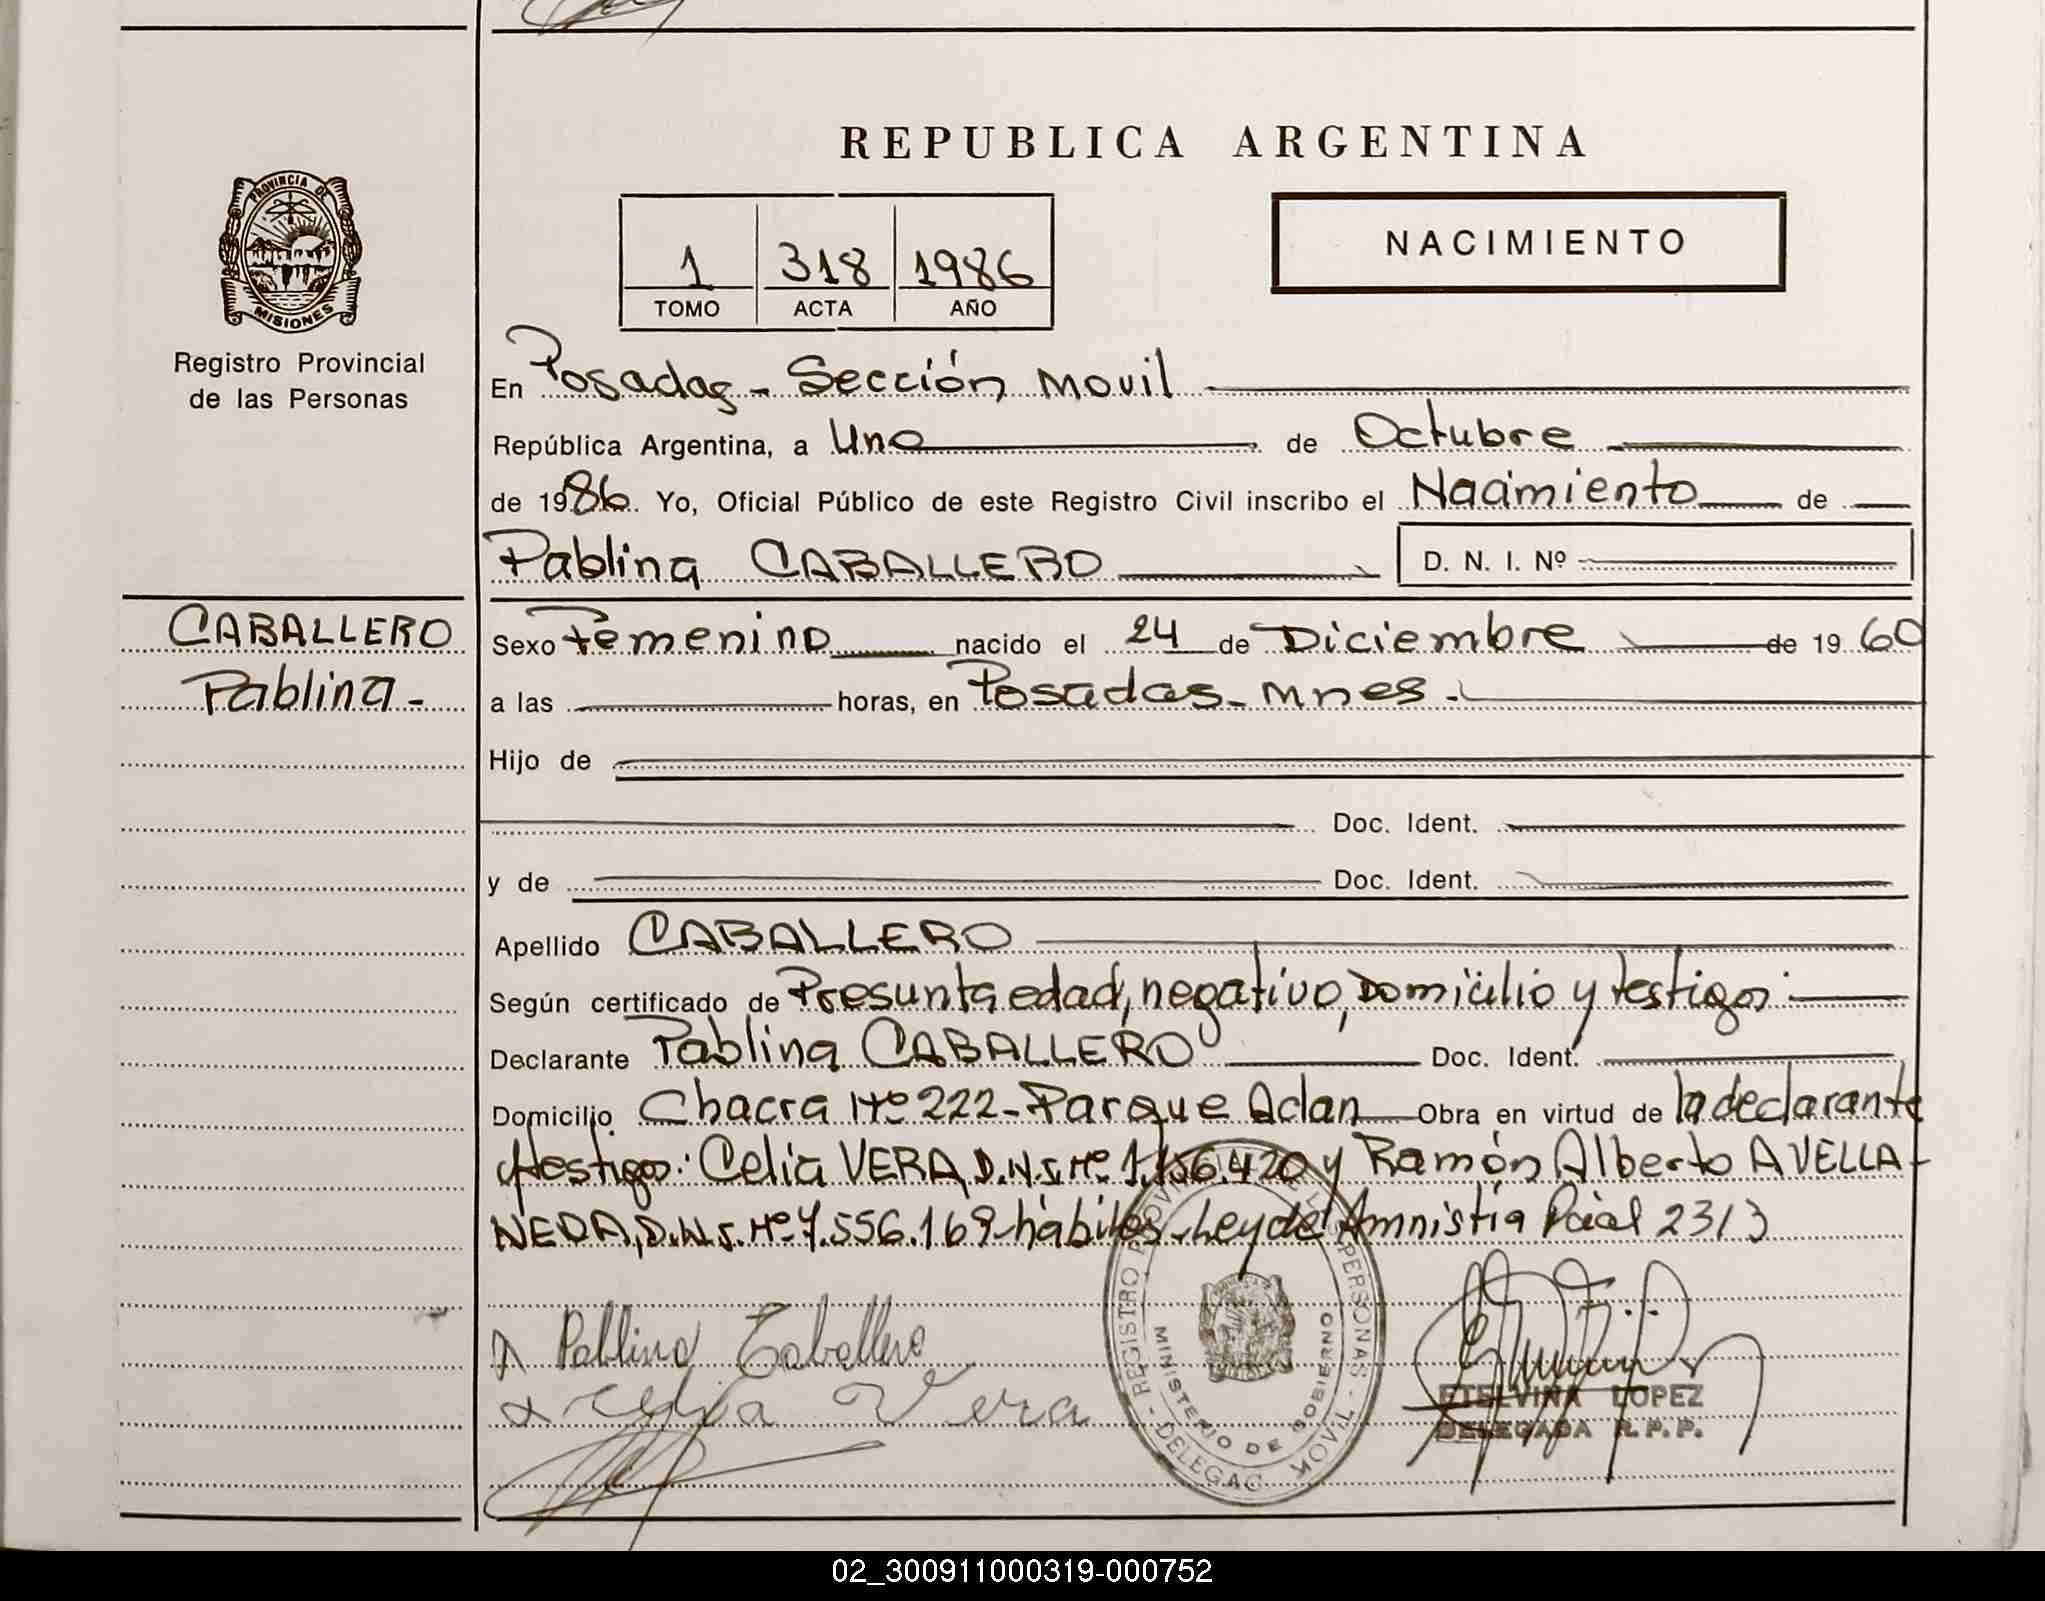 REPUBLICA ARGENTINA
PROVINCIA DE
MISIONES
Registro Provincial
de las Personas
1 318 1986
TOMO ACTA AÑO
NACIMIENTO
En Posadas - Sección Movil
República Argentina, a Uno de Octubre
de 1986. Yo, Oficial Público de este Registro Civil inscribo el Nacimiento de
Pablina CABALLERO D. N. I. Nº
CABALLERO
Pablina -
Sexo Femenino nacido el 24 de Diciembre de 1960
a las horas, en Posadas - Mnes -
Hijo de
Doc. Ident.
y de Doc. Ident.
Apellido CABALLERO
Según certificado de Presunta edad, negativo, Domicilio y testigos :
Declarante Pablina CABALLERO Doc. Ident.
Domicilio Chacra Nº 222 - Parque Adan Obra en virtud de la declarante
y testigos: Celia VERA, D.N.I. Nº 1.156.420 y Ramón Alberto AVELLA-
NEDA, D.N.I. Nº 7.556.169 hábiles - Ley de Amnistia Pcial 2313
Pablina Caballero
Celia Vera
REGISTRO PERSONAS - DELEGAC MOVIL
MINISTERIO DE GOBIERNO
ETELVINA LOPEZ
DELEGADA R.P.P.
02_300911000319-000752